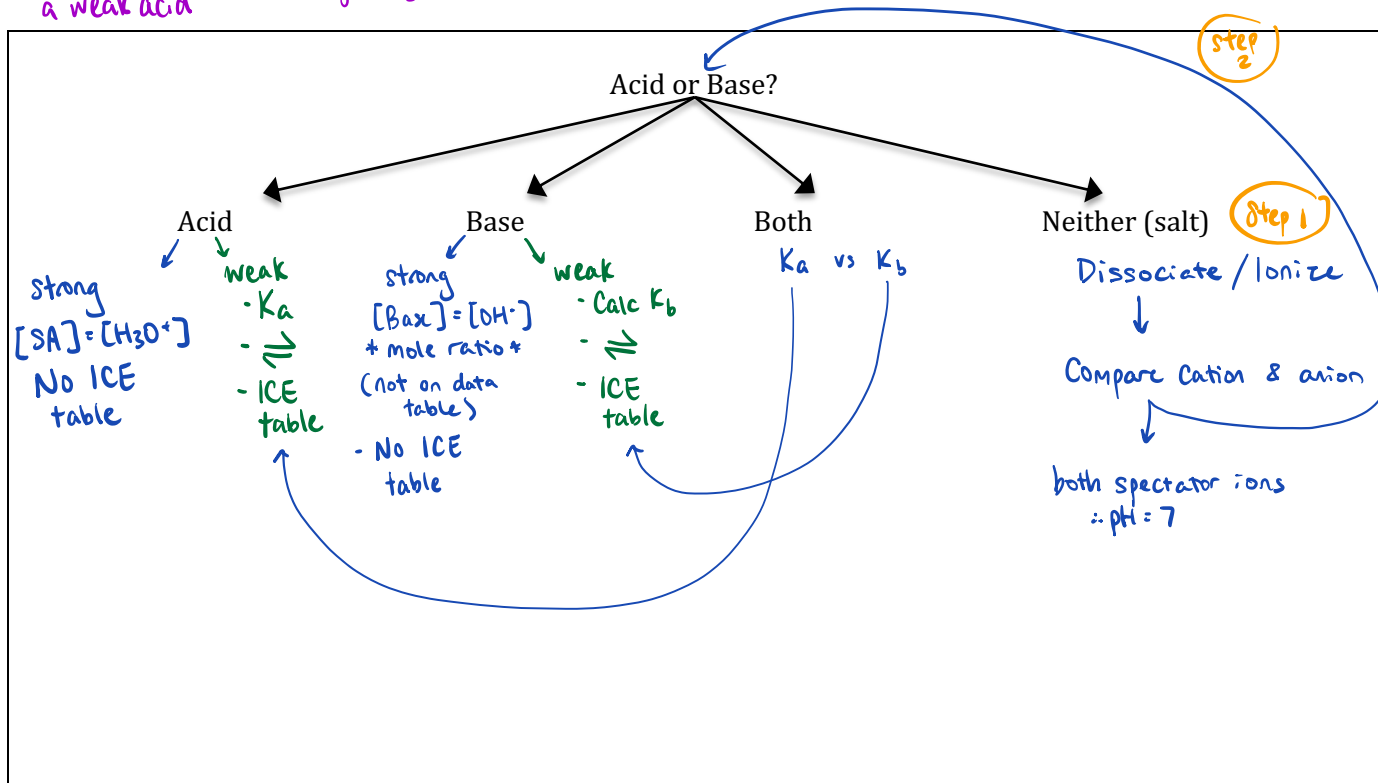 a weak acid
step
2
Acid or Base?
Acid
Base
Both
Neither (salt)
Step 1
strong
[SA]=[H₃O⁺]
No ICE
table
weak
- Ka
- ⇌
- ICE
table
strong
[Base]=[OH⁻]
* mole ratio *
(not on data
table)
- No ICE
table
weak
- Calc Kb
- ⇌
- ICE
table
Ka vs Kb
Dissociate / Ionize
Compare Cation & anion
both spectator ions
∴ pH = 7